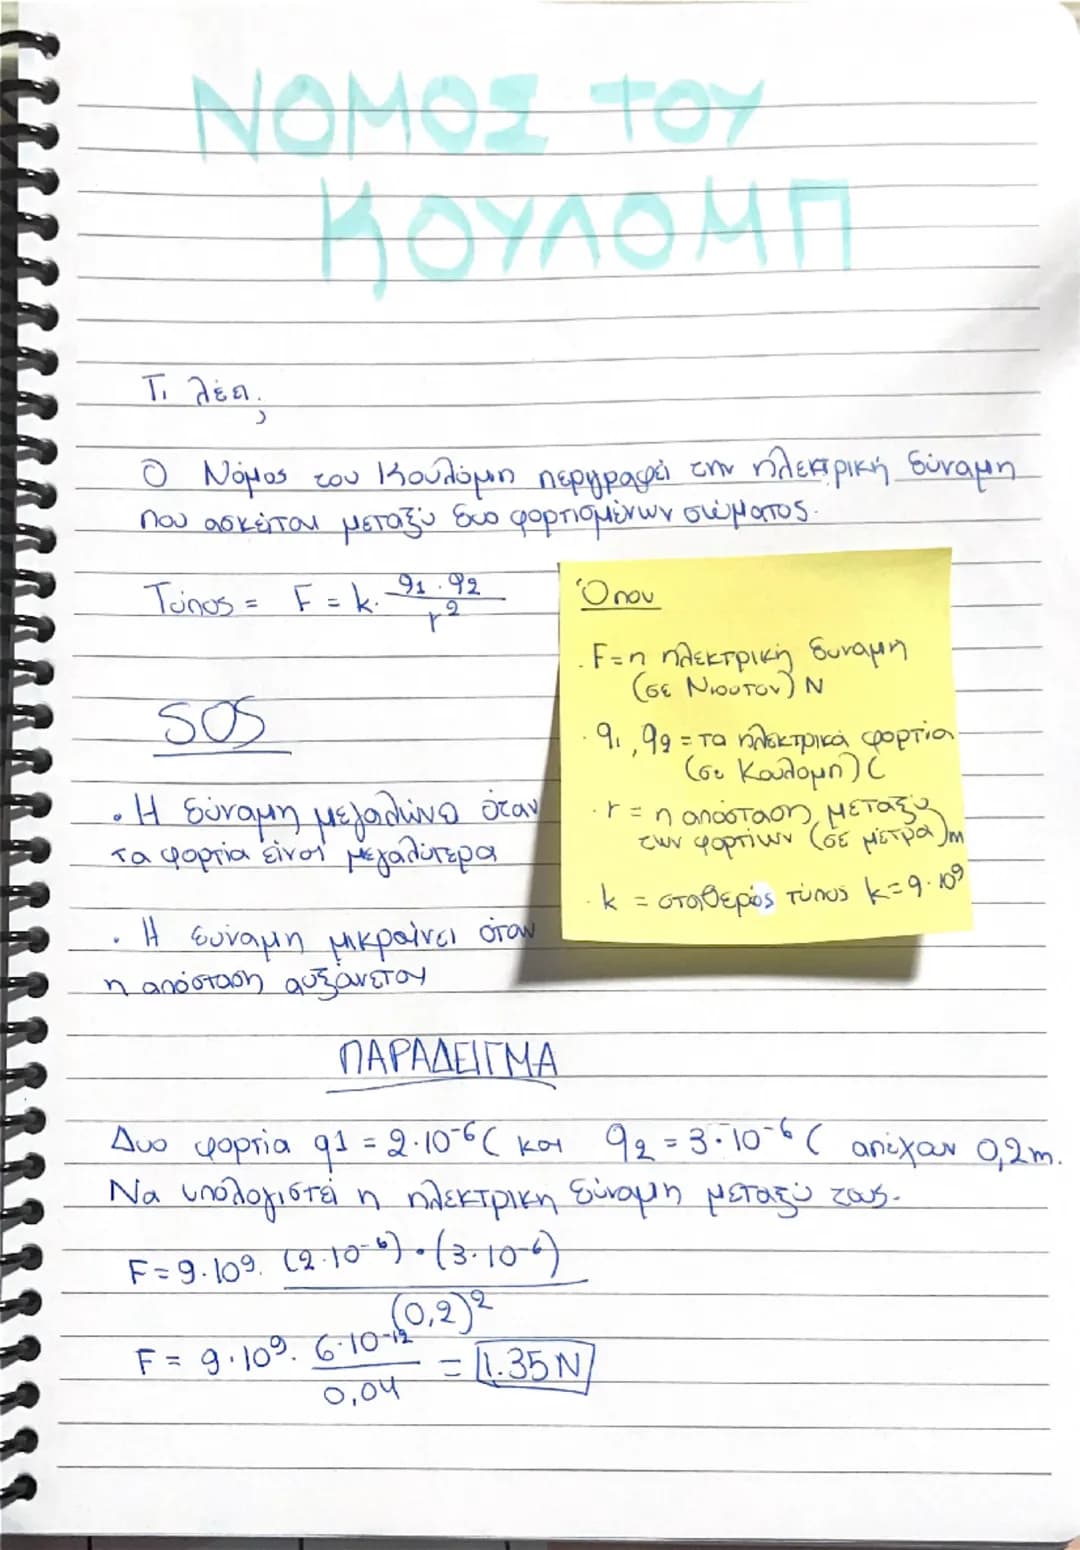 ΝΟΜΟΣ ΤΟΥ
ΚΟΥΛΟΜΠ
Τι λέει;
Ο Νόμος του Κουλόμπ περιγραφεί την ηλεκτρική δύναμη
που ασκείται μεταξύ δυο φορτισμένων σώματος.
Τύπος = F = k · q1 · q2 / r^2
SOS
• Η δύναμη μεγαλώνει όταν
τα φορτία είναι μεγαλύτερα
• Η δύναμη μικραίνει όταν
η απόσταση αυξάνεται
Όπου
· F = η ηλεκτρική δυναμη
(σε Νιουτον) N
· q1, q2 = τα ηλεκτρικά φορτία
(σε Κουλομπ) C
· r = η απόσταση μεταξύ
των φορτίων (σε μέτρα) m
· k = σταθερός τύπος k = 9 · 10^9
ΠΑΡΑΔΕΙΓΜΑ
Δυο φορτία q1 = 2·10^-6 C και q2 = 3·10^-6 C απέχουν 0,2m.
Να υπολογιστεί η ηλεκτρικη δύναμη μεταξύ τους.
F = 9·10^9 · (2·10^-6) · (3·10^-6) / (0,2)^2
F = 9·10^9 · 6·10^-12 / 0,04 = 1.35 N